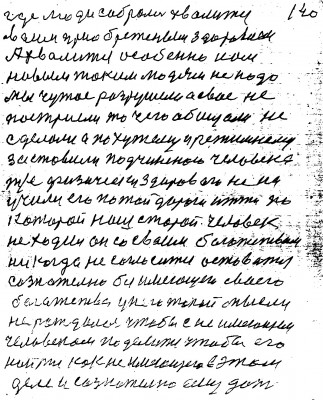 где люди собрали хвалити 140
в деле приобретеным здоровием
А хвалити особенно нам
новым таким людям не надо
мы чужое разрушили а свое не
построили то чего обещали не
сделали а по хужему прежнему
заставили подчиненого человека
уже физически здорового не на
учили его по той дороги итти по
которой наш старой человек
не ходил он со своим богатством
никогда не согласится остоватся
сознательно би имеющего своего
богатства у него такой мысли
не рождался чтобы с не имеющим
человеком поделити чтобы его
найти как не имеющего в этом
деле и сознательно ему дать